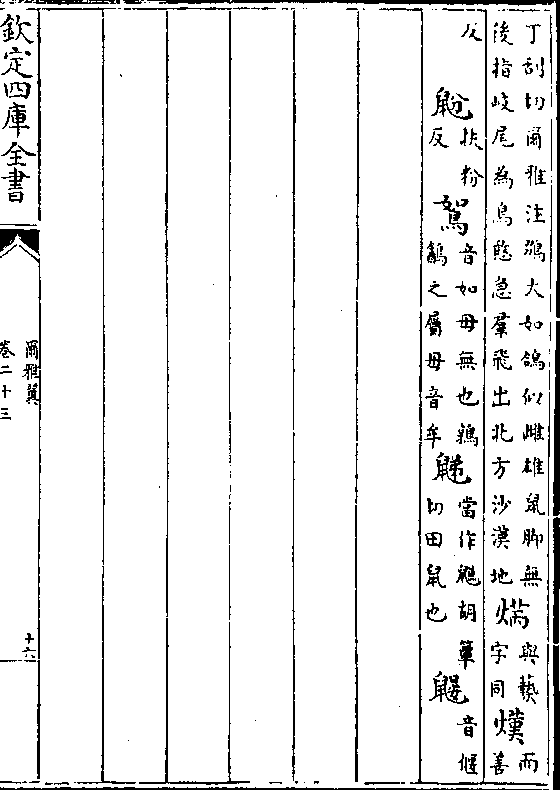 丁刮切爾雅注鵽大如鴿似雌雄鼠脚無
後指岐尾為鳥憨急羣飛出北方沙漠地
焫
與爇
字同
熯
而
善
反
鼢
扶粉
反
鴽
音如毋無也鶉
之屬毋音牟
當作鼸胡簟
切田鼠也
鼴
音偃
欽定四庫全書
爾雅翼
卷二十三
十六